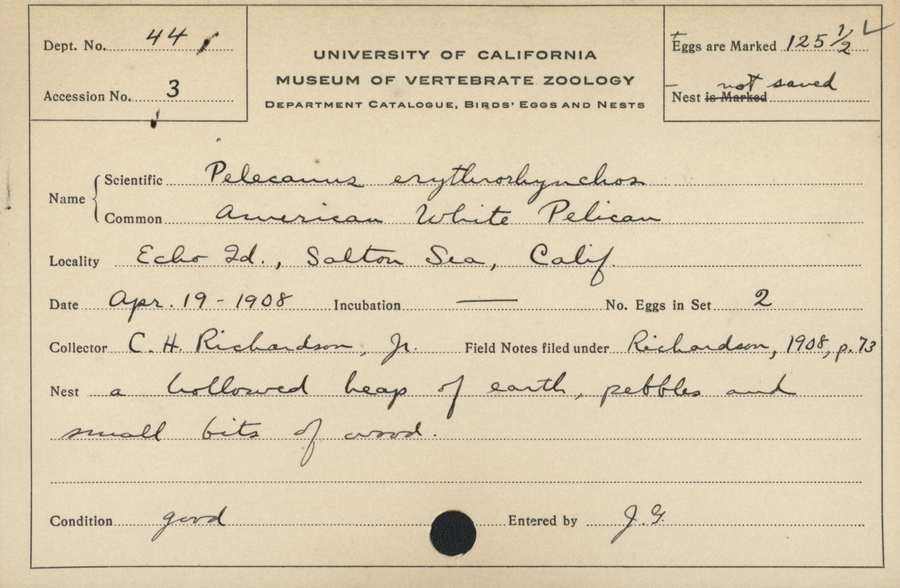 Dept. No. 44
Accession No. 3
UNIVERSITY OF CALIFORNIA
MUSEUM OF VERTEBRATE ZOOLOGY
DEPARTMENT CATALOGUE, BIRDS' EGGS AND NESTS
Eggs are Marked 125 1/2
not saved
Nest is Marked
Name
Scientific Pelecanus erythrorhynchos
Common American White Pelican
Locality Echo Id., Salton Sea, Calif
Date Apr. 19 - 1908 Incubation — No. Eggs in Set 2
Collector C. H. Richardson, Jr. Field Notes filed under Richardson, 1908, p. 73
Nest a hollowed heap of earth, pebbles and
small bits of wood.
Condition good Entered by J. G.